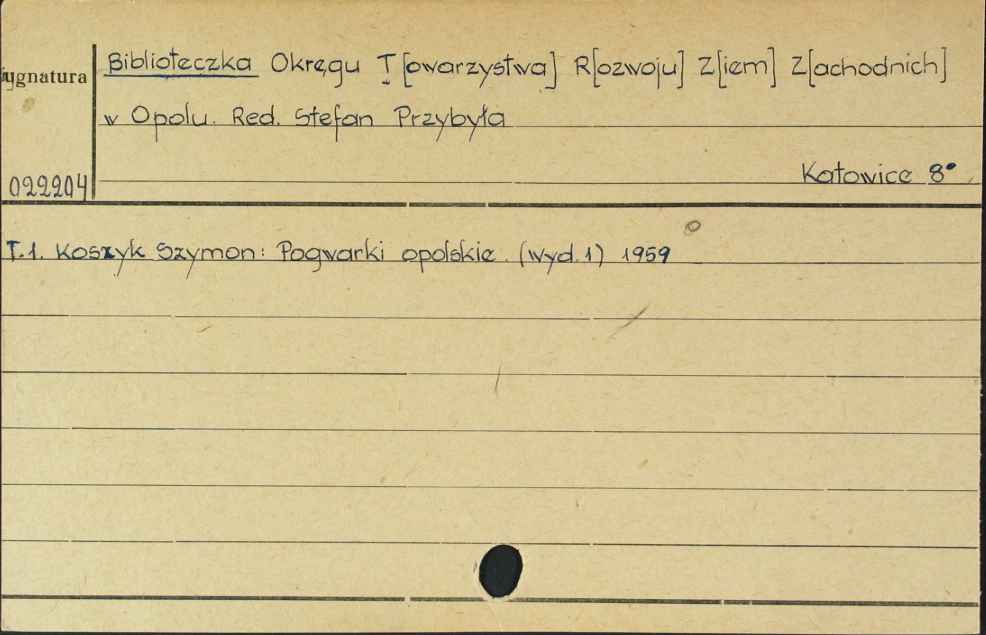 Biblioteczka Okręgu T[owarzystwa] R[ozwoju] Z[iem] Z[achodnich]
ygnatura
w Opolu. Red. Stefan Przybyła
Katowice 8°
022204
T.1. Koszyk Szymon: Pogwarki opolskie. (wyd.1) 1959